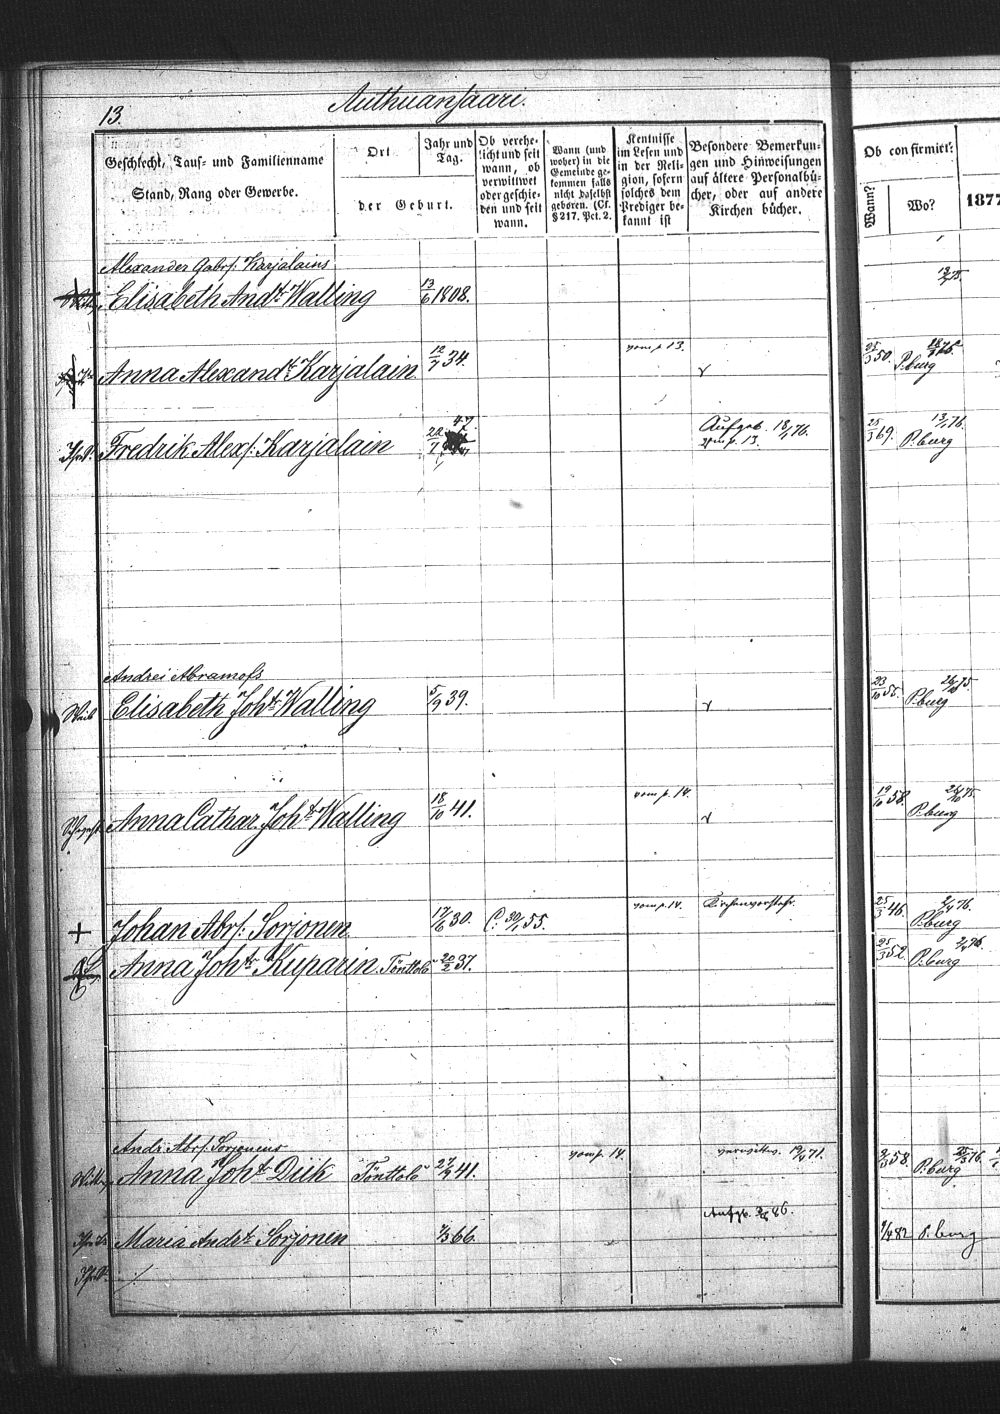 13.
Authuansaari.
Geschlecht, Tauf- und Familienname
Stand, Rang oder Gewerbe.
Ort
der Geburt.
Jahr und Tag.
Ob verehelicht und seit wann, ob verwittwet oder geschieden und seit wann.
Wann (und woher) in die Gemeinde gekommen falls nicht daselbst geboren. (Cf. § 217. Pct. 2.
Kentnisse im Lesen und in der Religion, sofern solches dem Prediger bekannt ist
Besondere Bemerkungen und Hinweisungen auf ältere Personalbücher, oder auf andere Kirchen bücher.
Ob confirmiet:
Wann?
Wo?
1877
Alexander Gabrs. Karjalains
Elisabeth Andt. Walling 13/6 1808.
Anna Alexandt. Karjalain 12/7 34. vom p. 13. 25/3 50. P.burg
Fredrik Alexs: Karjalain 22/7 47 Aufgeb. 18/1 76. vom p. 13. 25/3 69. P.burg 13/1 76.
Andrei Abramofs
Weib Elisabeth Joht. Walling 5/9 39. 23/10 55. P.burg
Anna Cathar. Joht. Walling 18/10 41. vom p. 14. 19/10 58. P.burg
+ Johan Abrs: Sorjonen 17/6 30. C: 30/1 55. vom p. 14. Kirchenvorstehr. 25/3 46. P.burg
Anna Joht. Kuparin Tönttölö 20/2 37. 25/3 52. P.burg
Andr. Abrs. Sorjonens
Anna Joht. Diik Tönttölö 27/9 41. vom p. 14. verwittw. 19/4 71. 58. P.burg
Aufgb. 86.
Maria Andrt. Sorjonen 1/3 66. 82 P.burg